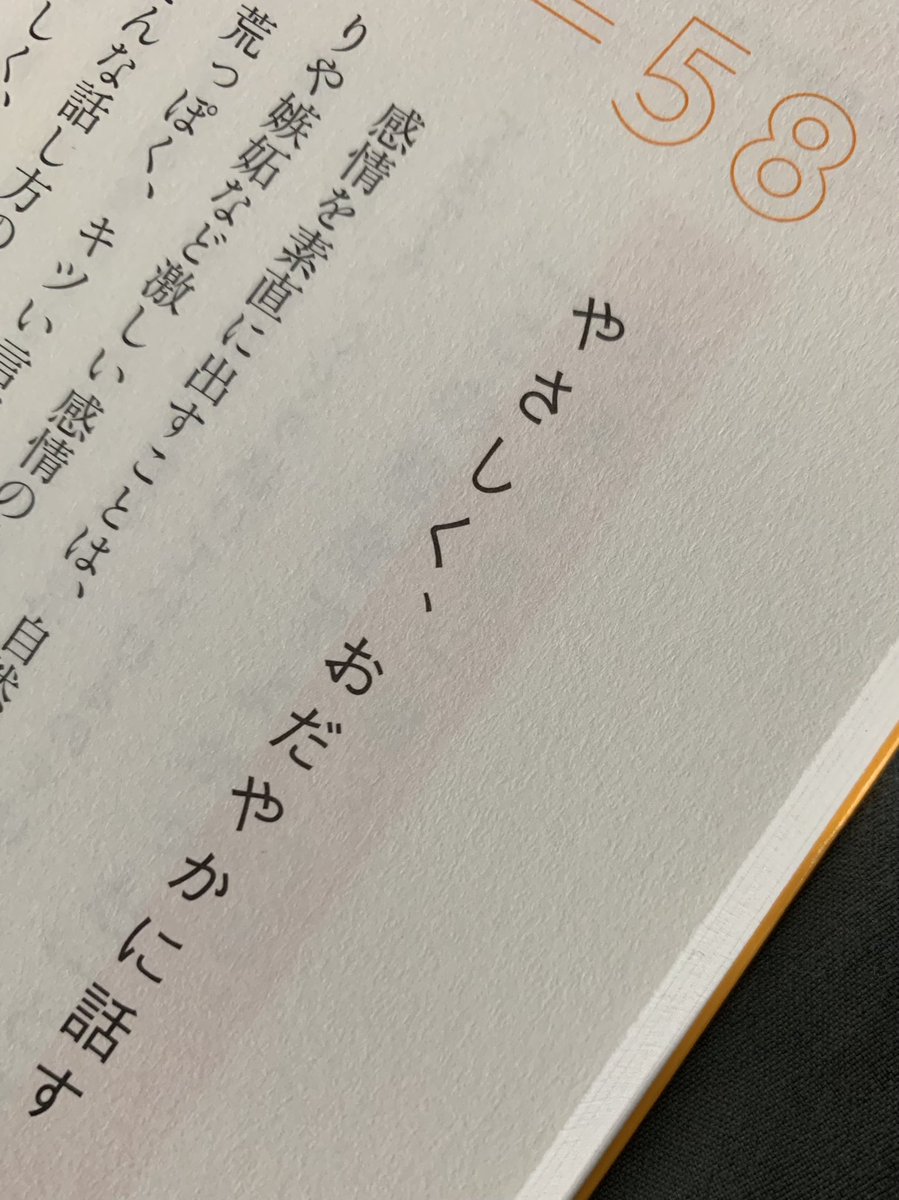 58
やさしく、おだやかに話す
感情を素直に出すことは、自然
りや嫉妬など激しい感情の
荒っぽく、キツい言
んな話し方の
しく、